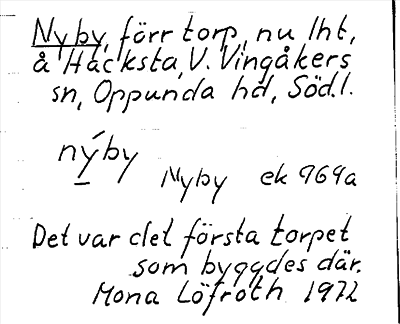 Nyby, förr torp, nu lht,
å Hacksta, V. Vingåkers
sn, Oppunda hd, Södl.
nýby Nyby ek 969a
Det var det första torpet
som byggdes där.
Mona Löfroth 1972